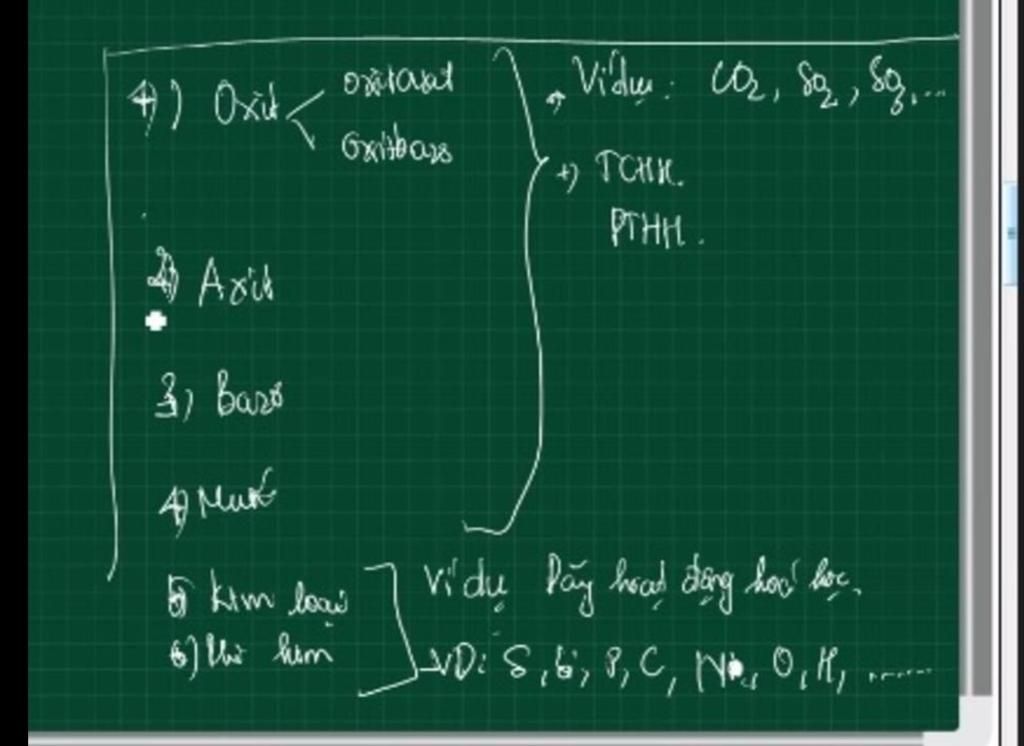 1) Oxit < oxit axit
oxit bazơ
+) Ví dụ: CO2, SO2, SO3,...
+) TCHH.
PTHH.
2) Axit
3) Bazơ
4) Muối
5) Kim loại
Ví dụ Dãy hoạt động hoá học.
6) Phi kim
VD: S, Si, P, C, N, O, H, ......